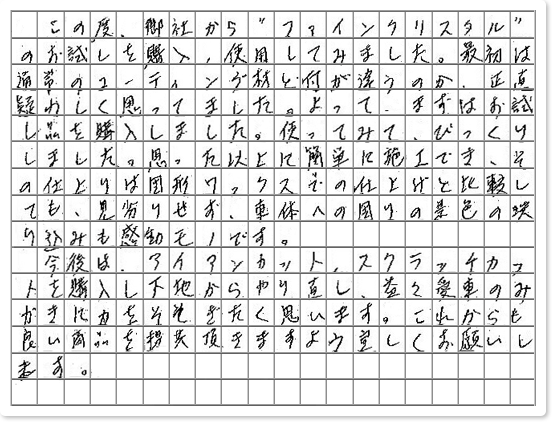 この度、御社から“ファインクリスタル”
のお試しを購入、使用してみました。最初は
通常のコーティング材と何が違うのか、正直
疑わしく思ってました。よって、まずはお試
し品を購入しました。使ってみて、びっくり
しました。思った以上に簡単に施工でき、そ
の仕上りは固形ワックスでの仕上げと比較し
ても、見劣りせず、車体への周りの景色の映
り込みも感動モノです。
今後は、アイアンカット、スクラッチカッ
トを購入し下地からやり直し、益々愛車のみ
がきに力をそそぎたく思います。これからも
良い商品を提供頂きますよう宜しくお願いし
ます。